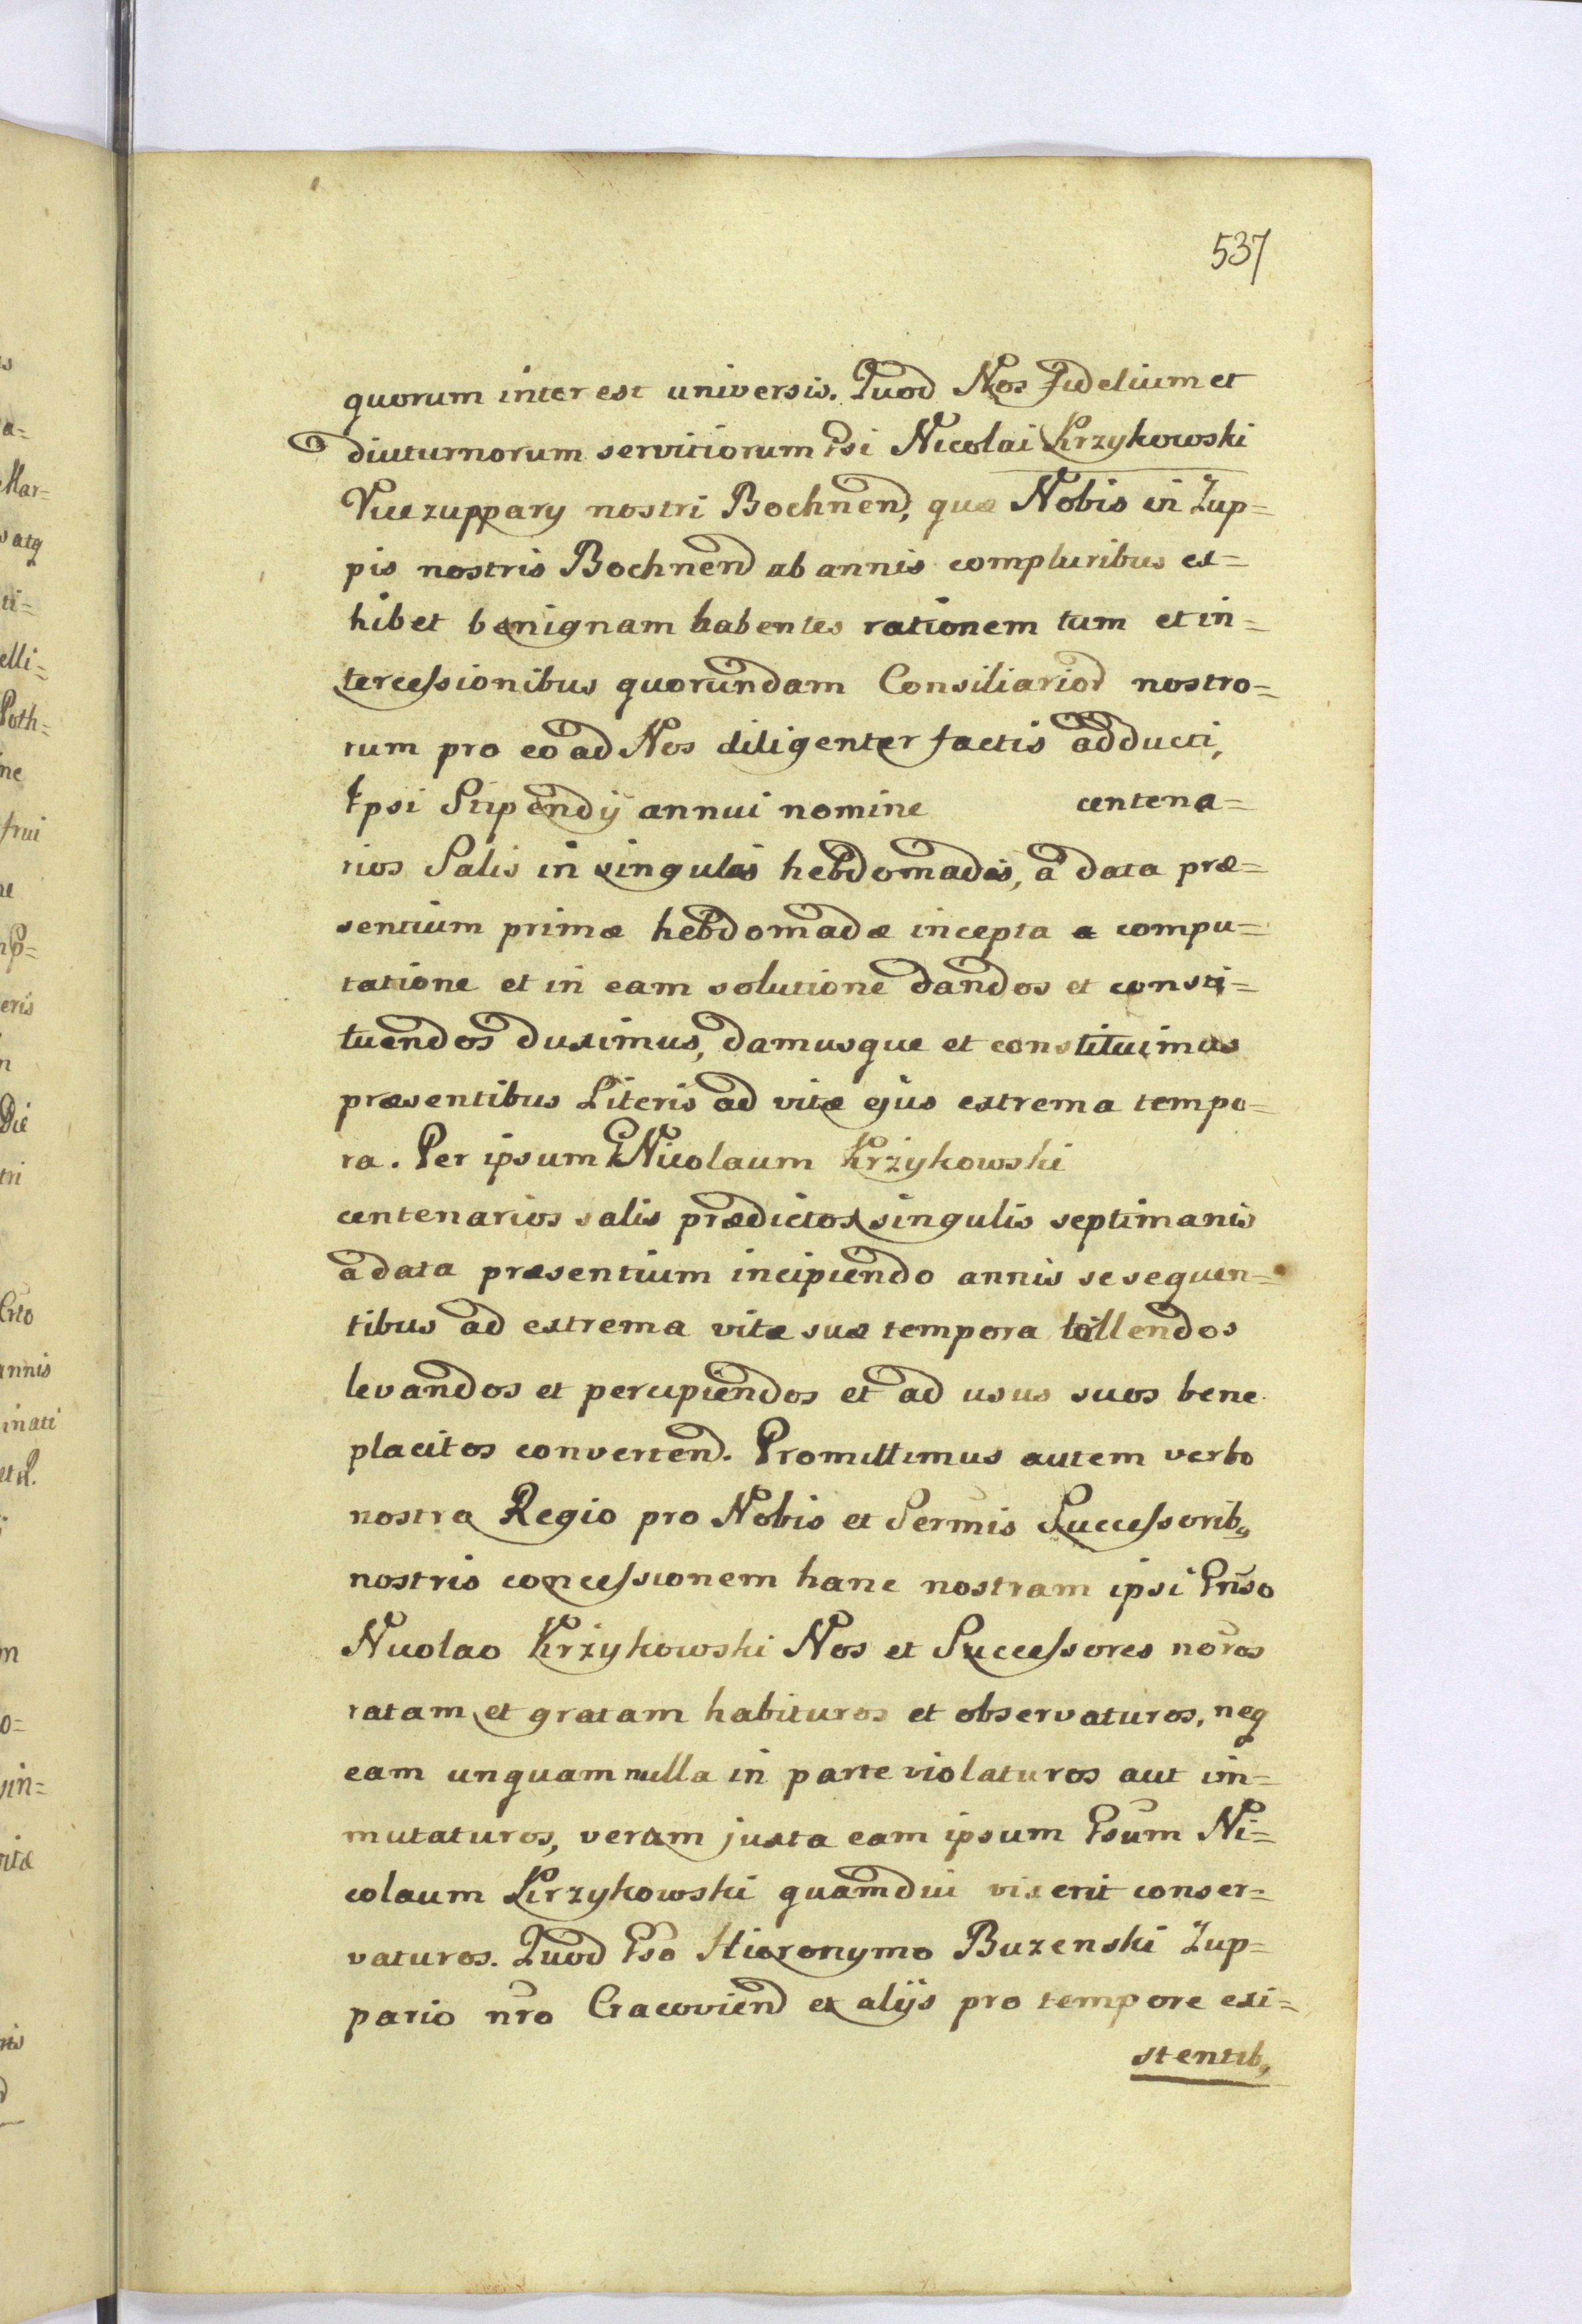 537
quorum interest universis. Quod Nos fidelium et
diuturnorum servitiorum Gsi Nicolai Krzykowski
Vicezuppary nostri Bochnen, quæ Nobis in Zup=
pis nostris Bochnen ab annis compluribus ex=
hibet benignam habentes rationem tum et in=
tercessionibus quorundam Consiliarior nostro=
rum pro eo ad Nos diligenter factis adducti,
Ipsi Stipendij annui nomine centena=
rios Salis in singulas hebdomadas, a data præ=
sentium primæ hebdomadæ incepta a compu=
tatione et in eam solutione dandos et consti=
tuendos duximus, damusque et constituimus
præsentibus Literis ad vitæ ejus extrema tempo=
ra. Per ipsum G Nicolaum Krzykowski
centenarios salis prædictos singulis septimanis
a data præsentium incipiendo annis se sequen=
tibus ad extrema vitæ suæ tempora tollendos
levandos et percipiendos et ad usus suos bene
placitos converten. Promittimus autem verbo
nostro Regio pro Nobis et Sermis Successorib,
nostris concessionem hanc nostram ipsi Gnso
Nicolao Krzykowski Nos et Successores nõros
ratam et gratam habituros et observaturos, neq
eam unquam nulla in parte violaturos aut im=
mutaturos, verum juxta eam ipsum Gsum Ni=
colaum Krzykowski quamdiu vixerit conser=
vaturos. Quod Gso Hieronymo Buzenski Zup=
pario nro Cracovien et alijs pro tempore exi=
stentib,